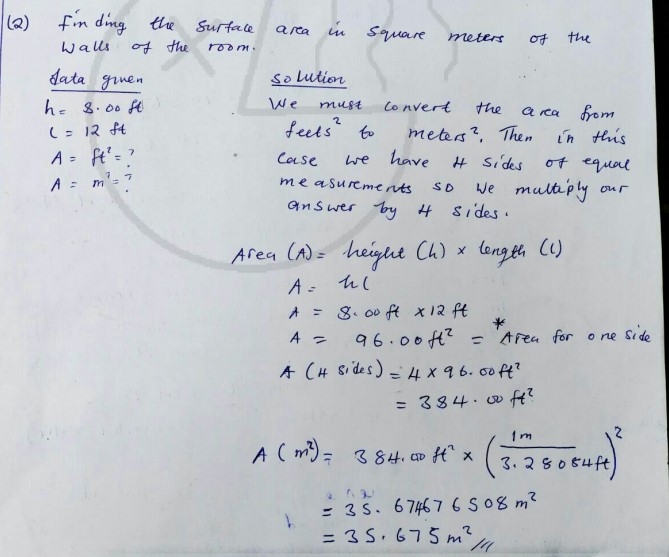 (2) Finding the Surface area in Square meters of the
Walls of the room.
data given
h = 8.00 ft
l = 12 ft
A = ft² = ?
A = m² = ?
solution
We must convert the area from
feets² to meters². Then in this
case we have 4 sides of equal
measurements so we multiply our
answer by 4 sides.
Area (A) = height (h) × length (l)
A = hl
A = 8.00 ft × 12 ft
A = 96.00 ft² = *Area for one side
A (4 sides) = 4 × 96.00 ft²
= 384.00 ft²
A (m²) = 384.00 ft² × (1m / 3.28084ft)²
= 35.674676508 m²
= 35.675 m² ///